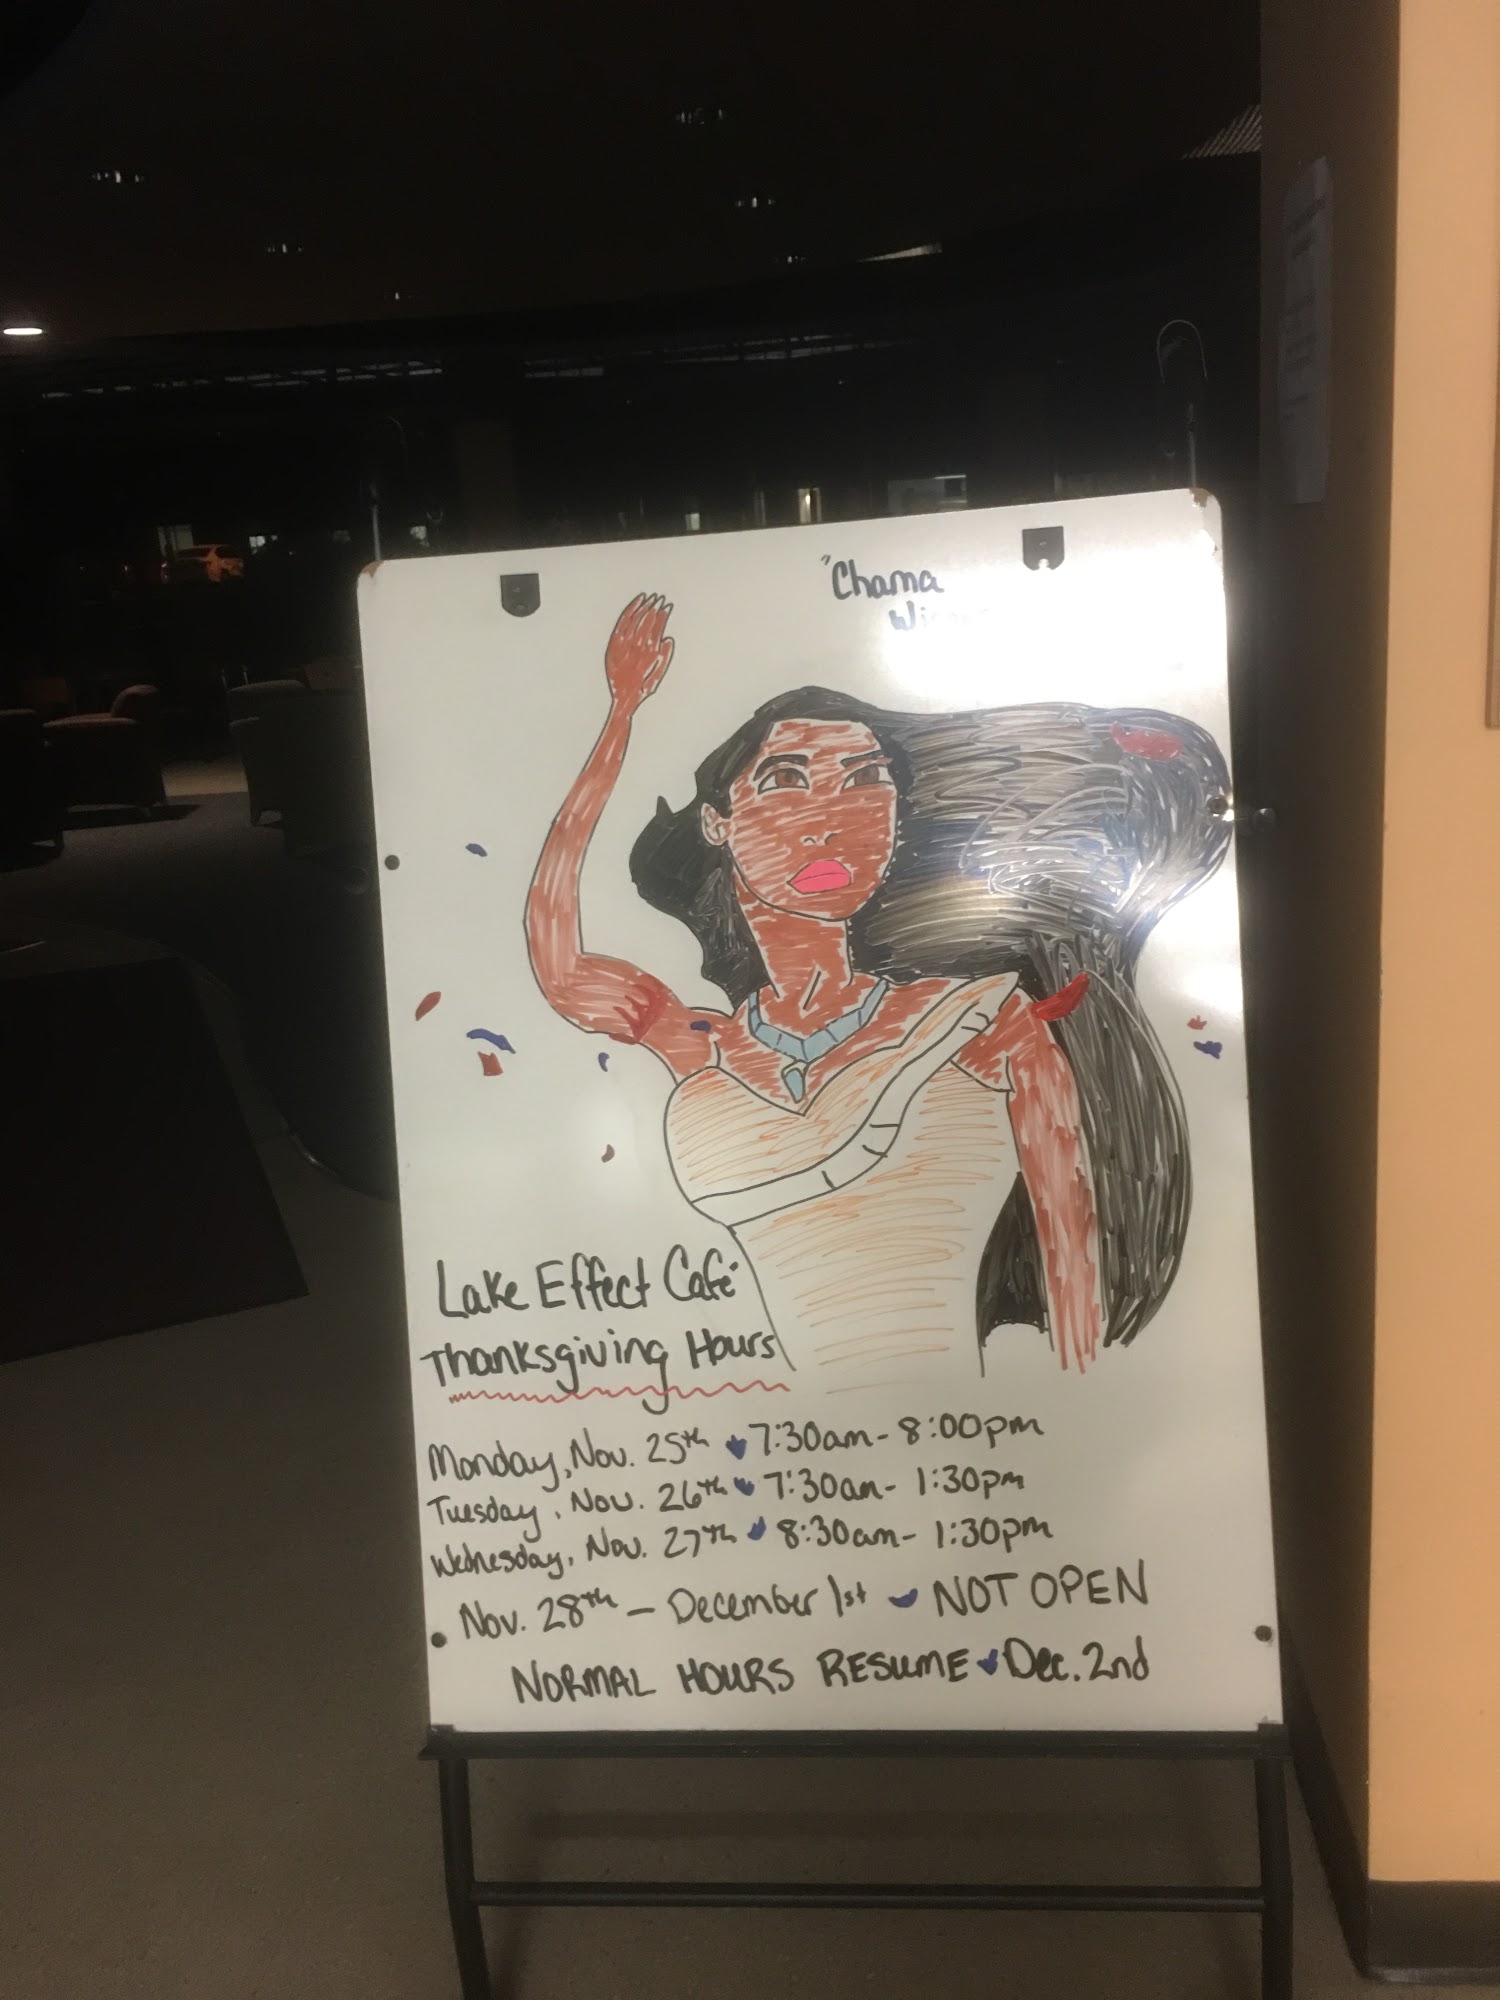 "Chama
Lake Effect Café
Thanksgiving Hours
Monday, Nov. 25th 7:30am - 8:00pm
Tuesday, Nov. 26th 7:30am - 1:30pm
Wednesday, Nov. 27th 8:30am - 1:30pm
Nov. 28th - December 1st NOT OPEN
NORMAL HOURS RESUME Dec. 2nd